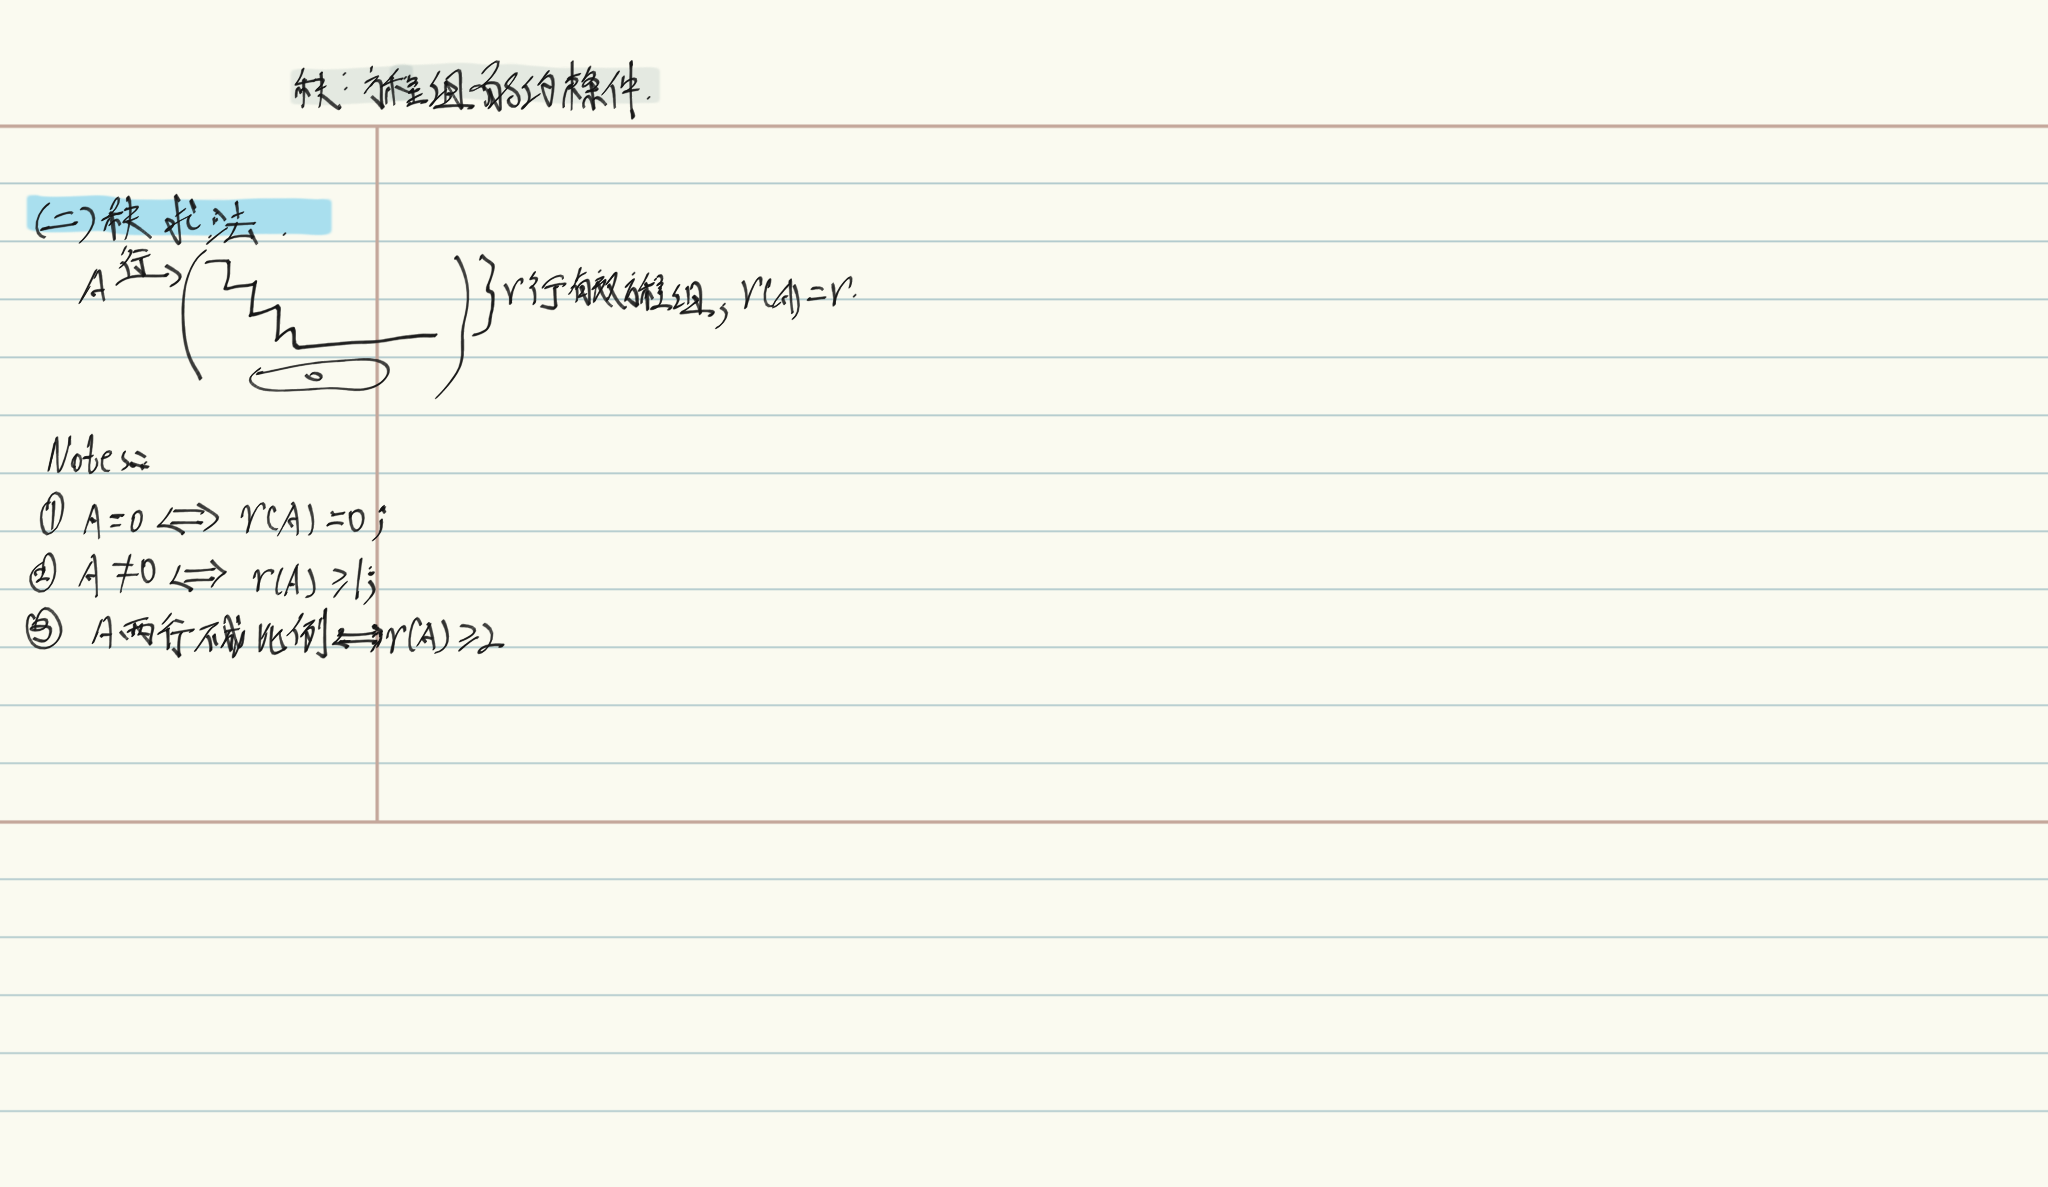 秩：方程组的约束条件.
(二)秩求法.
A 行→ ( 0 ) } r行有效方程组, r(A)=r.
Notes:
① A=0 ⟺ r(A)=0;
② A≠0 ⟺ r(A)≥1;
③ A两行不成比例⟺r(A)≥2